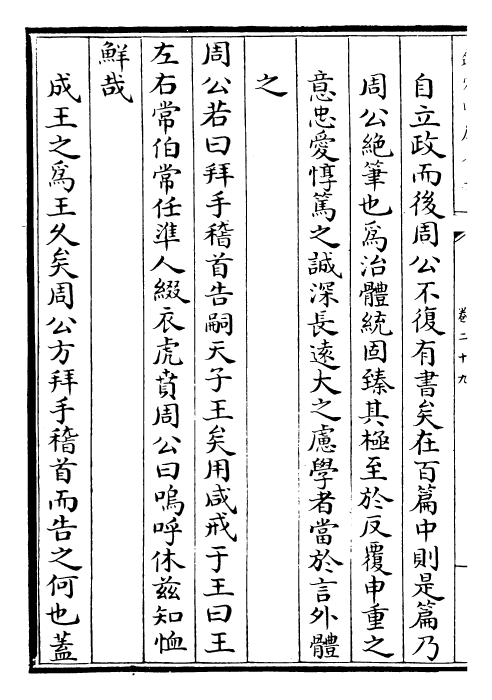 卷二十九
自立政而後周公不復有書矣在百篇中則是篇乃
周公絶筆也爲治體統固臻其極至於反覆申重之
意忠愛惇篤之誠深長遠大之慮學者當於言外體
之
周公若曰拜手稽首告嗣天子王矣用咸戒于王曰王
左右常伯常任準人綴衣虎賁周公曰嗚呼休兹知恤
鮮哉
成王之爲王久矣周公方拜手稽首而告之何也蓋